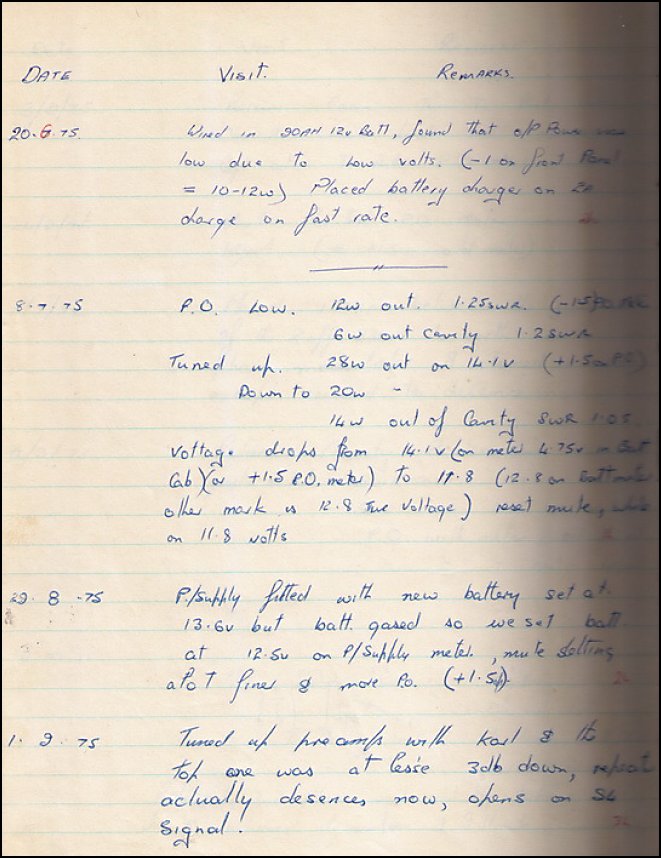 DATE VISIT. REMARKS.
20.6.75. Wired in 20AH 12v Batt, found that o/P Power was
low due to low volts. (-1 on front Panel
= 10-12w) Placed battery charger on 2A
charge on fast rate.
8.7.75 P.O. Low. 12w out. 1.25 SWR. (-1.5
6w out cavity 1.2 SWR
Tuned up. 28w out on 14.1v (+1.5 on P.O)
Down to 20w -
14w out of Cavity SWR 1.05
Voltage drops from 14.1v (on meter 4.75v in Batt
Cab) (or +1.5 P.O. meter) to 11.8 (12.8 on Battmeter
other mark is 12.8 True Voltage) reset mute, while
on 11.8 volts
29.8.75 P./Supply fitted with new battery set at
13.6v but batt. gased so we set batt.
at 12.5v on P/Supply meter., mute setting
a lot finer & more Po. (+1.5
1.9.75 Tuned up preamps with Karl & the
top one was at 3db down, repeat
actually desences now, opens on S4
signal.